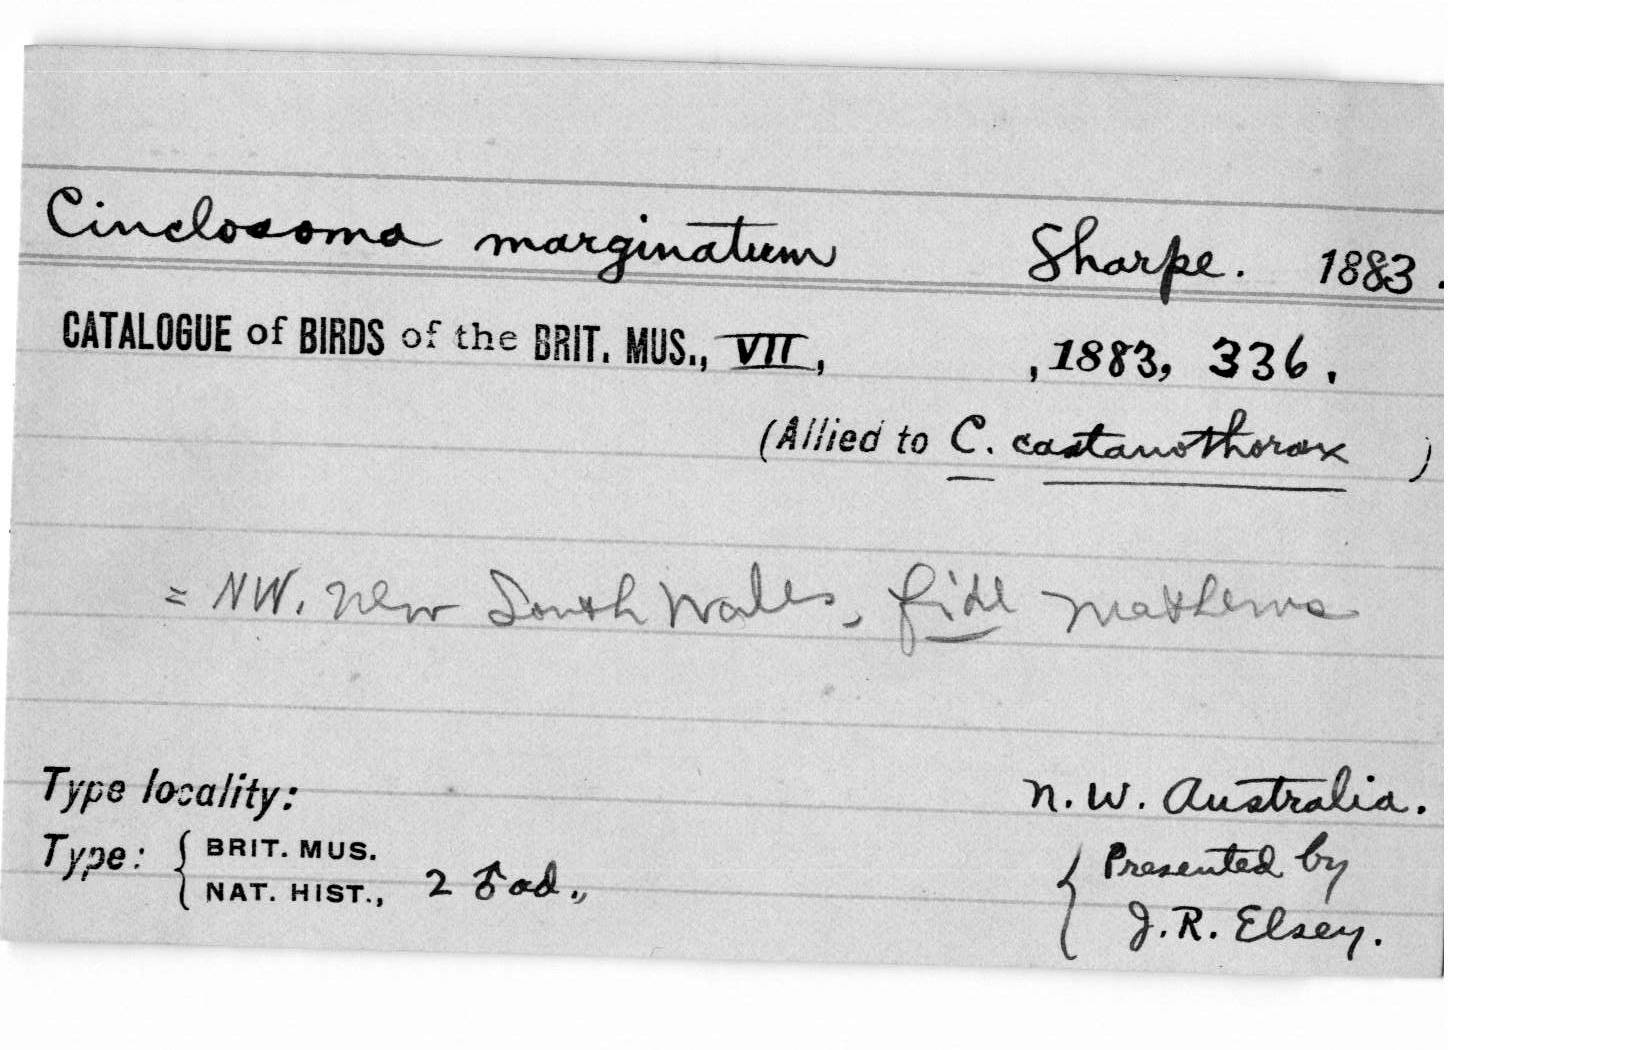 Cinclosoma marginatum Sharpe. 1883.
CATALOGUE of BIRDS of the BRIT. MUS., VII, , 1883, 336.
(Allied to C. castanothorax )
= NW. New South Wales, fide Mathews
Type locality: N.W. Australia.
Type: { BRIT. MUS. { Presented by
NAT. HIST., 2 ♂ ad., J.R. Elsey.